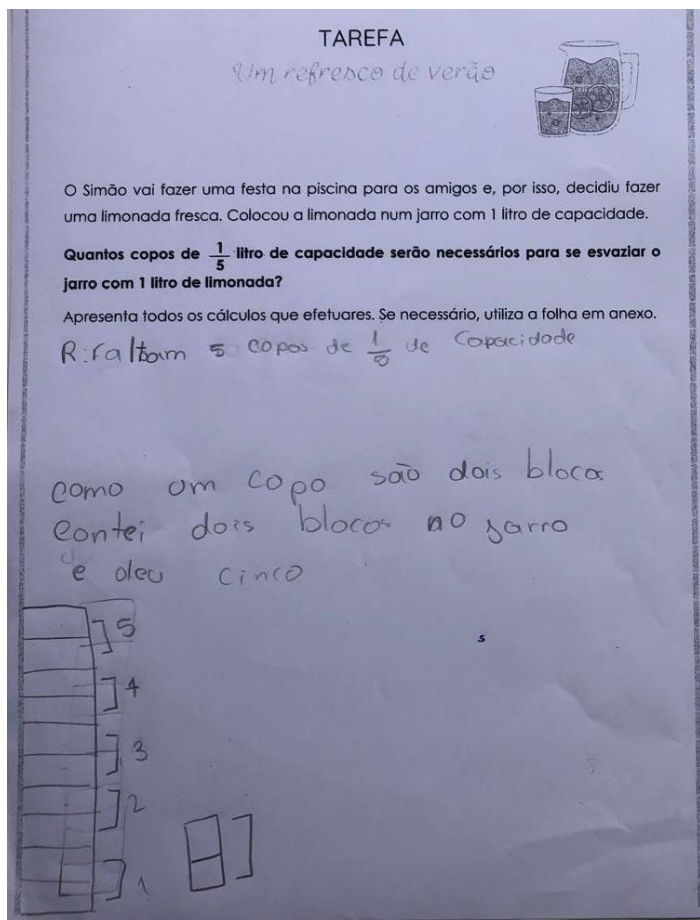 TAREFA
Um refresco de verão
O Simão vai fazer uma festa na piscina para os amigos e, por isso, decidiu fazer
uma limonada fresca. Colocou a limonada num jarro com 1 litro de capacidade.
Quantos copos de 1/5 litro de capacidade serão necessários para se esvaziar o
jarro com 1 litro de limonada?
Apresenta todos os cálculos que efetuares. Se necessário, utiliza a folha em anexo.
R: faltam 5 copos de 1/5 de Capacidade
como um copo são dois blocos
contei dois blocos no jarro
e deu cinco
5
s
4
3
5
2
1